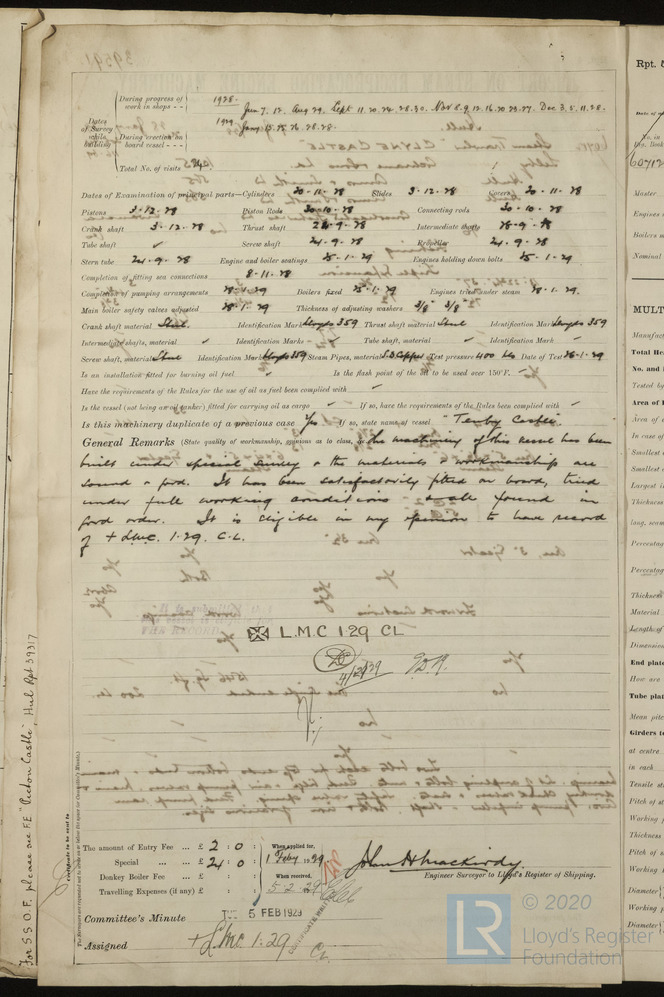 39591
During progress of work in shops - - 1928. June 7. 12. Aug 29. Sept 11. 20. 24. 28. 30. Nov 8. 9. 12. 16. 20. 23. 27. Dec 3. 5. 11. 28.
Dates of Survey while building
During erection on board vessel - - - 1929. Jan 15. 25. 26. 28. 28.
Total No. of visits 24
Dates of Examination of principal parts—Cylinders 20-11-28 Slides 3-12-28 Covers 20-11-28
Pistons 3-12-28 Piston Rods 30-10-28 Connecting rods 30-10-28
Crank shaft 3-12-28 Thrust shaft 28-9-28 Intermediate shafts 28-9-28
Tube shaft ✓ Screw shaft 24-9-28 Propeller 24-9-28
Stern tube 24-9-28 Engine and boiler seatings 25-1-29 Engines holding down bolts 25-1-29
Completion of fitting sea connections 8-11-28
Completion of pumping arrangements 28-1-29 Boilers fixed 25-1-29 Engines tried under steam 28-1-29.
Main boiler safety valves adjusted 28-1-29 Thickness of adjusting washers 3/8 3/8
Crank shaft material Steel. Identification Mark Lloyds 359 Thrust shaft material Steel Identification Mark Lloyds 359
Intermediate shafts, material ✓ Identification Marks ✓ Tube shaft, material ✓ Identification Mark ✓
Screw shaft, material Steel Identification Mark Lloyds 359 Steam Pipes, material S.D. Copper Test pressure 400 lbs Date of Test 26-1-29
Is an installation fitted for burning oil fuel ✓ Is the flash point of the oil to be used over 150°F. ✓
Have the requirements of the Rules for the use of oil as fuel been complied with ✓
Is the vessel (not being an oil tanker) fitted for carrying oil as cargo ✓ If so, have the requirements of the Rules been complied with ✓
Is this machinery duplicate of a previous case Yes If so, state name of vessel "Tenby Castle"
General Remarks (State quality of workmanship, opinions as to class, &c. The machinery of this vessel has been
built under special survey & the materials & workmanship are
sound & good. It has been satisfactorily fitted on board, tried
under full working conditions & all found in
good order. It is eligible in my opinion to have record
of + LMC. 1.29. C.L.
THE RECORD
L.M.C 1.29 CL
4/2/29
The amount of Entry Fee ... £ 2 : 0 :
Special ... ... £ 24 : 0 :
Donkey Boiler Fee ... £ : :
Travelling Expenses (if any) £ : :
When applied for,
1 Feby 1929
When received,
5.2.29
John H Mackirdy.
Engineer Surveyor to Lloyd's Register of Shipping.
Committee's Minute
TUE 5 FEB 1929
Assigned + LMC. 1.29 CL
Certificate to be sent to
For S.S.O.F. please see F.E. "Picton Castle", Hul Rpt 39317
Rpt. 5
60712
Master
Engines
Boilers m
Nominal
MULT
Manufact
Total He
No. and
Tested by
Area of
Area of
In case of
Smallest
Smallest
Largest i
Thickness
long. seam
Percentag
Percentag
Thickness
Material
Length of
Dimension
End plate
How are
Tube plat
Mean pitc
Girders to
at centre
in each
Tensile st
Pitch of st
Working p
Thickness
Pitch of s
Working
Diameter
Working
Diameter
© 2020
LR
Lloyd's Register
Foundation